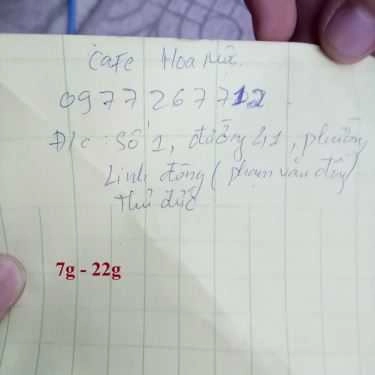 Cafe Hoa Mix
0977267712
Đ/c : Số 1, đường 41, phường
Linh đông (phạm văn đồng)
Thủ đức
7g - 22g